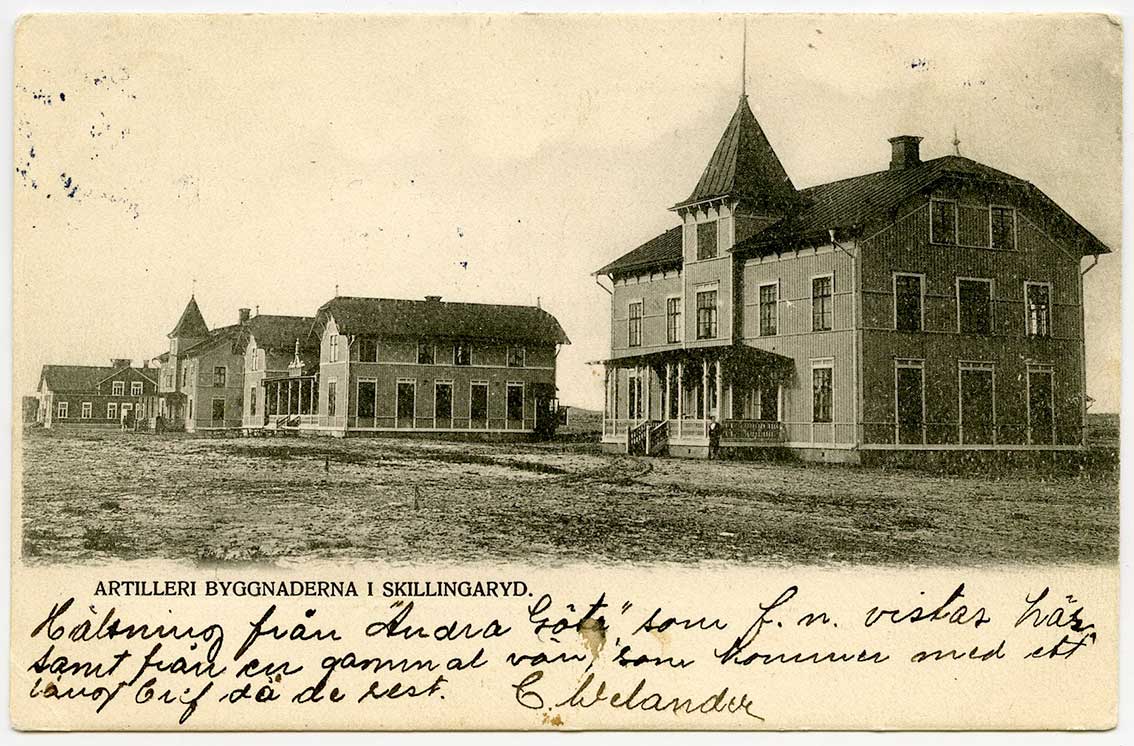 ARTILLERI BYGGNADERNA I SKILLINGARYD.
Hälsning från "Andra Göta", som f. n. vistas här,
samt från en gammal vän, som kommer med ett
långt bref så de rest. C. Welander